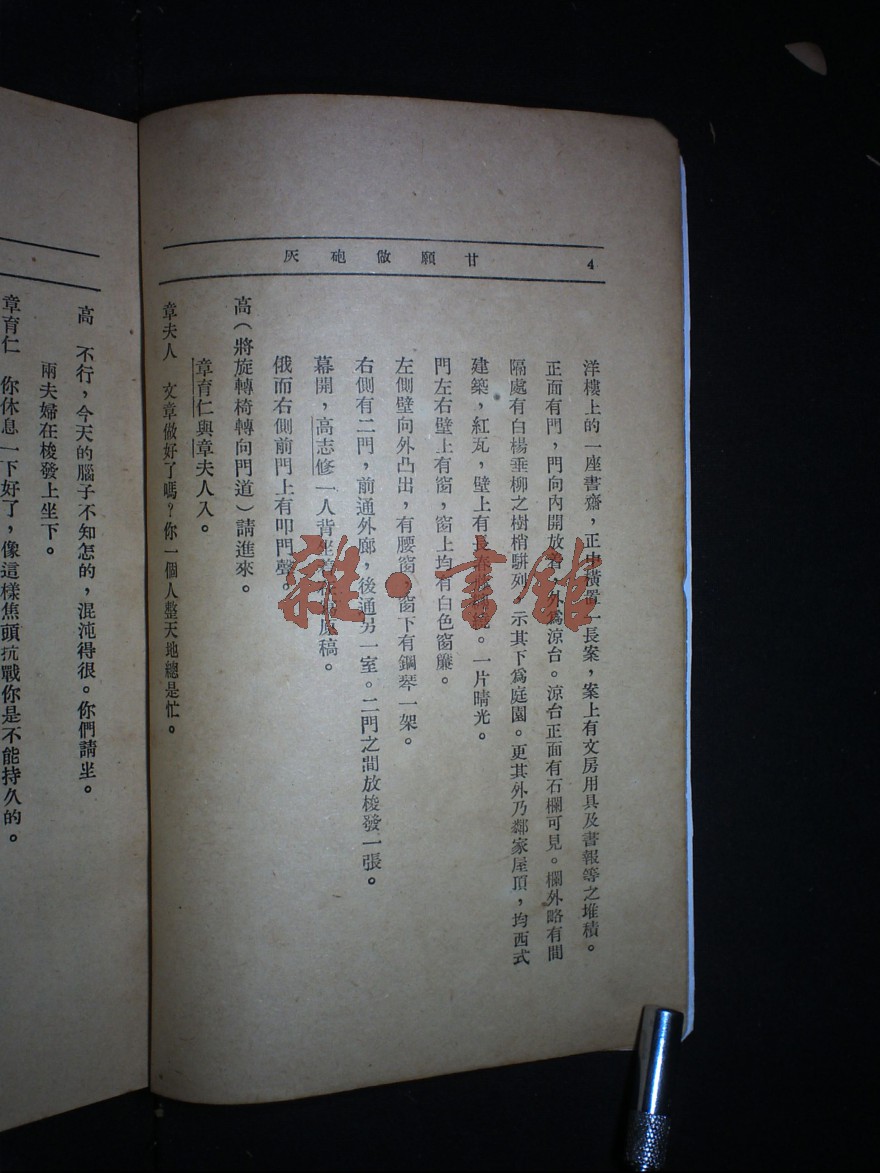 甘願做砲灰
4
洋樓上的一座書齋，正中橫置一長案，案上有文房用具及書報等之堆積。
正面有門，門向內開放着，外爲涼台。涼台正面有石欄可見。欄外略有間
隔處有白楊垂柳之樹梢駢列，示其下爲庭園。更其外乃鄰家屋頂，均西式
建築，紅瓦，壁上有長春 。一片晴光。
門左右壁上有窗，窗上均有白色窗簾。
左側壁向外凸出，有腰窗，窗下有鋼琴一架。
右側有二門，前通外廊，後通另一室。二門之間放梭發一張。
幕開，高志修一人背坐 原稿。
俄而右側前門上有叩門聲。
高（將旋轉椅轉向門道）請進來。
章育仁與章夫人入。
章夫人 文章做好了嗎？你一個人整天地總是忙。
高 不行，今天的腦子不知怎的，混沌得很。你們請坐。
兩夫婦在梭發上坐下。
章育仁 你休息一下好了，像這樣焦頭抗戰你是不能持久的。
雜·書館